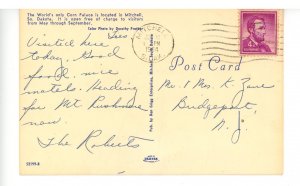 The World's only Corn Palace is located in Mitchell,
So. Dakota. It is open free of charge to visitors
from May through September.
Color Photo by Dorothy
Visited here
today. Good
food, nice
motels. Heading
for Mt Rushmore
now.
The Roberts
MITCHELL
PM
S. DAK.
4¢
Post Card
Mr & Mrs K. Zane
Bridgeport,
N. J.